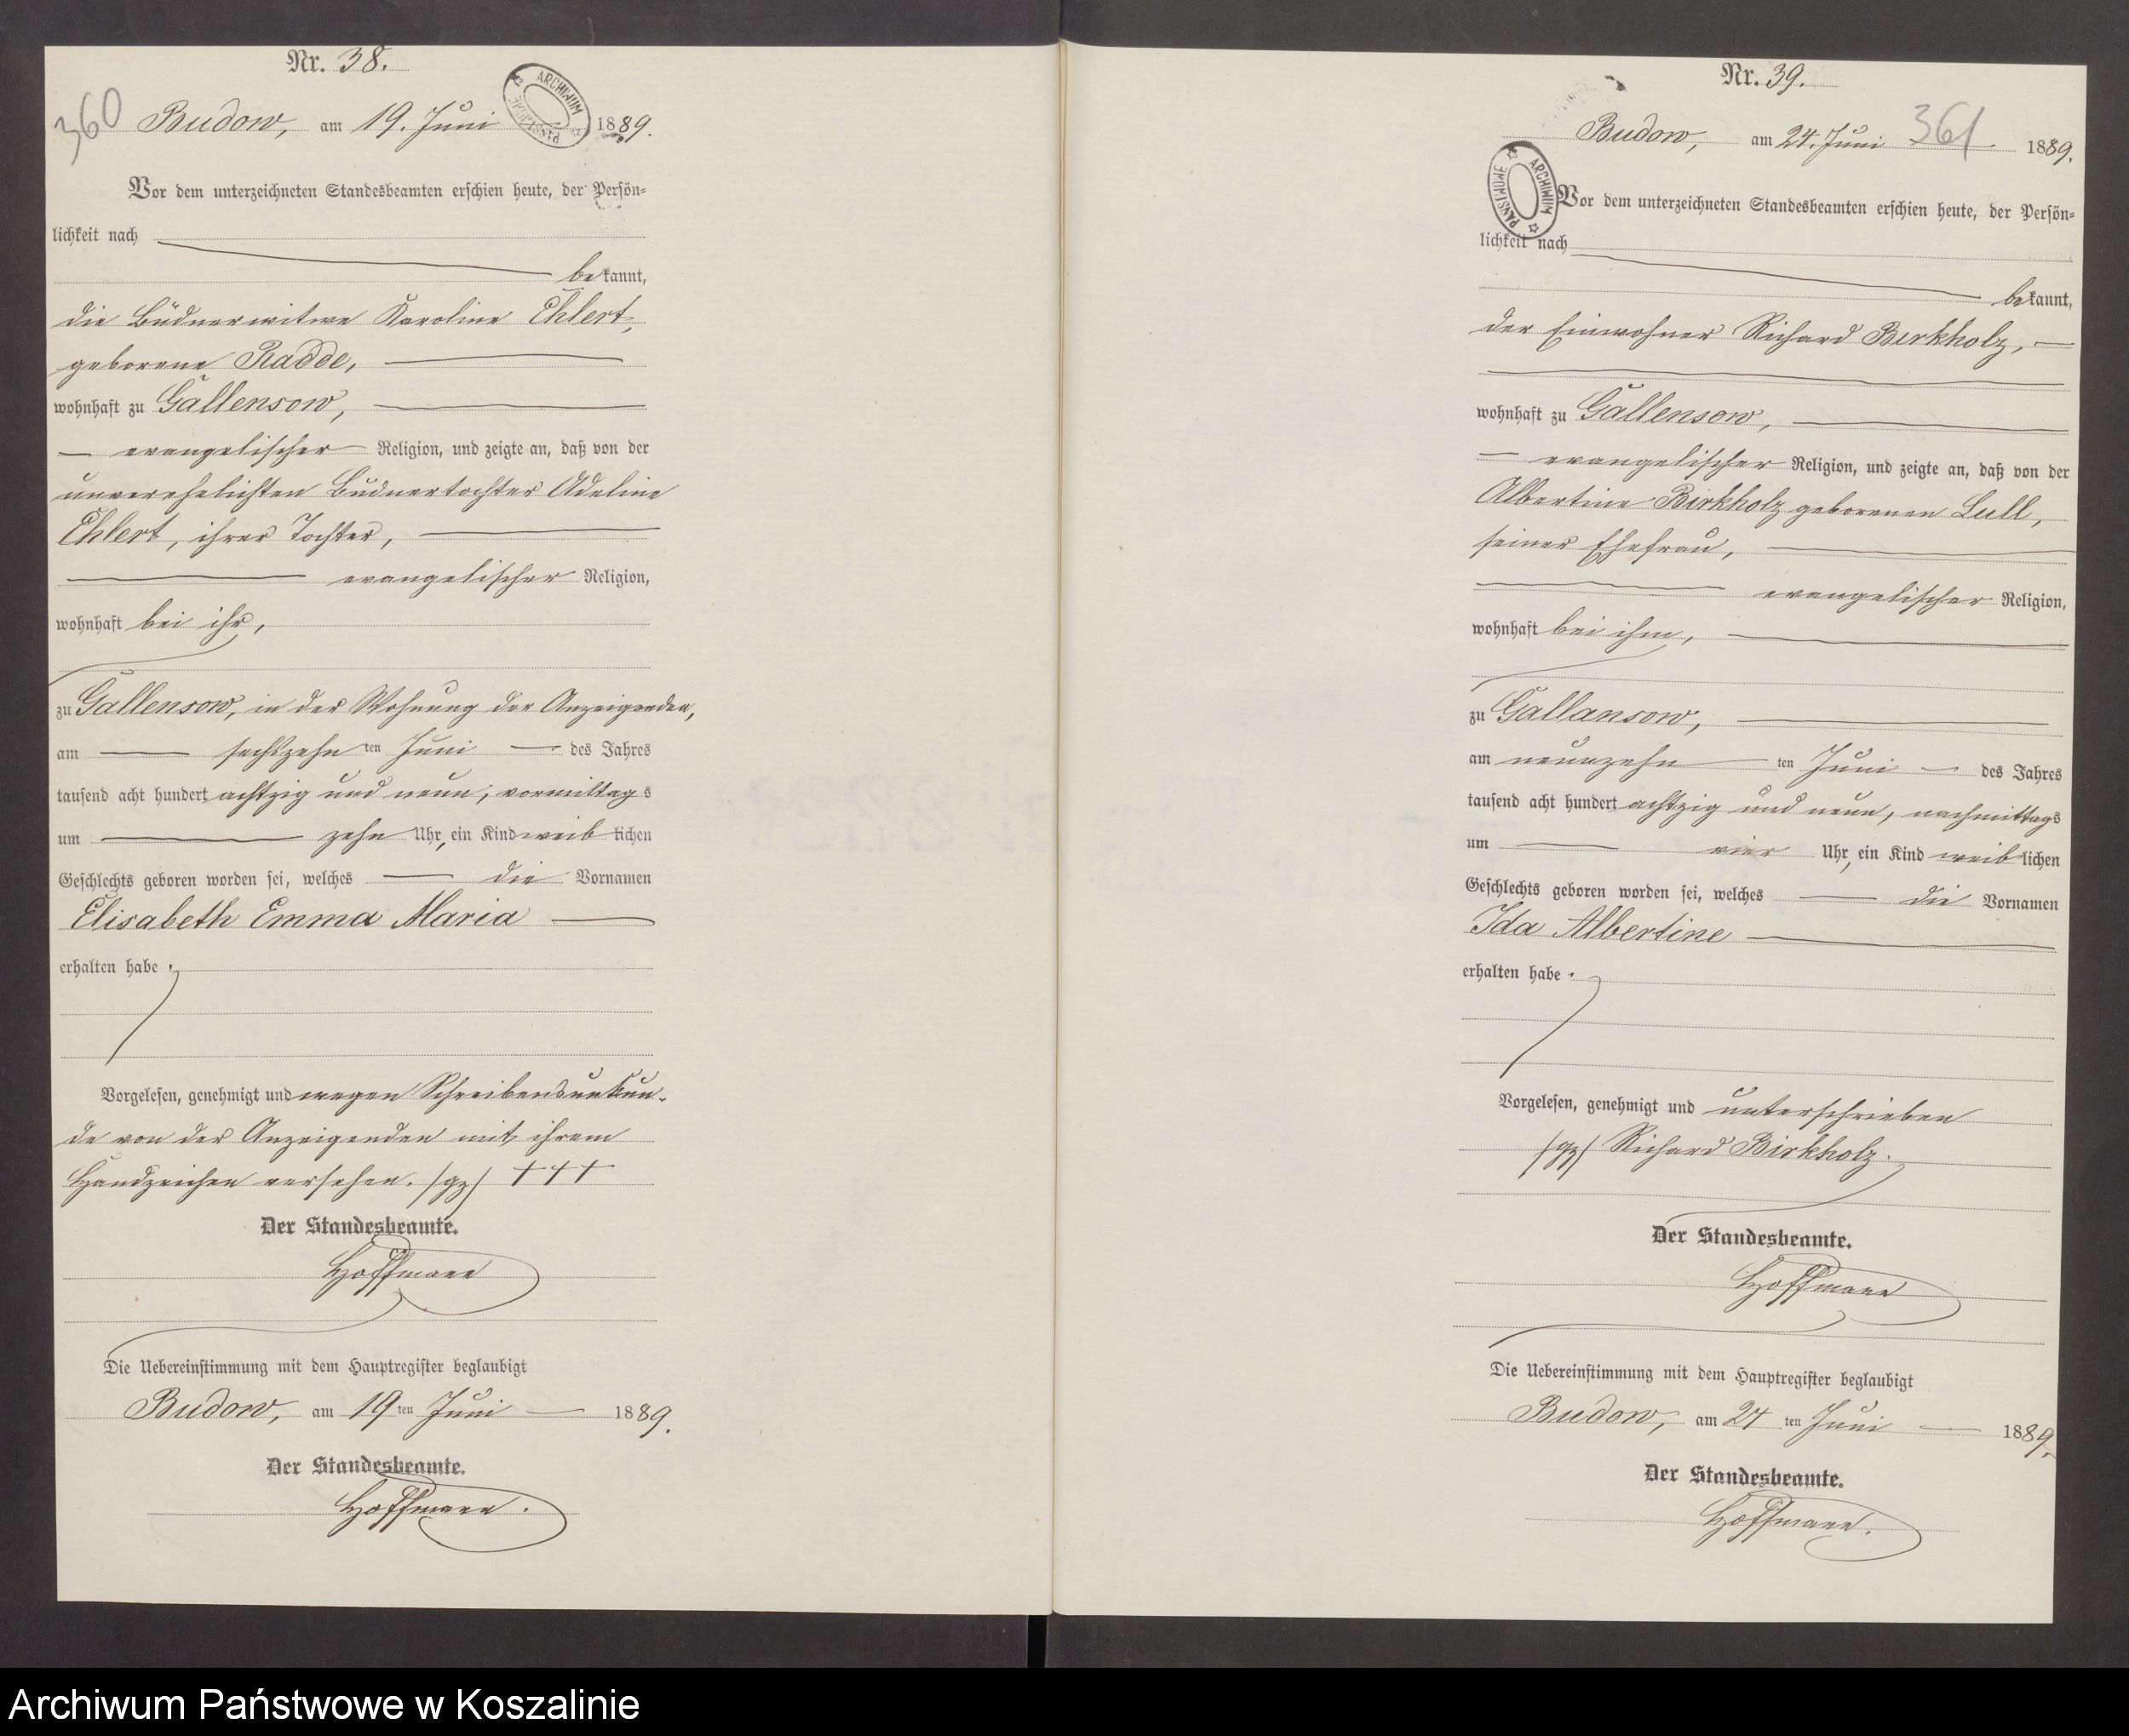 Nr. 38.
360
Budow, am 19. Juni 1889.
ARCHIWUM PAŃSTWOWE
Vor dem unterzeichneten Standesbeamten erschien heute, der Persön-
lichkeit nach
bekannt,
die Büdnerwitwe Karoline Ehlert,
geborene Radde,
wohnhaft zu Gallensow,
evangelischer Religion, und zeigte an, daß von der
unverehelichten Büdnertochter Adeline
Ehlert, ihrer Tochter,
evangelischer Religion,
wohnhaft bei ihr,
zu Gallensow, in der Wohnung der Anzeigenden,
am sechszehnten Juni des Jahres
tausend acht hundert achtzig und neun, vormittags
um zehn Uhr, ein Kind weiblichen
Geschlechts geboren worden sei, welches die Vornamen
Elisabeth Emma Maria
erhalten habe.
Vorgelesen, genehmigt und wegen Schreibensunkun-
de von der Anzeigenden mit ihrem
Handzeichen versehen. /gz/ +++
Der Standesbeamte.
Hoffmann
Die Uebereinstimmung mit dem Hauptregister beglaubigt
Budow, am 19ten Juni 1889.
Der Standesbeamte.
Hoffmann.
Nr. 39.
361
Budow, am 24. Juni 1889.
ARCHIWUM PAŃSTWOWE
Vor dem unterzeichneten Standesbeamten erschien heute, der Persön-
lichkeit nach
bekannt,
der Einwohner Richard Birkholz,
wohnhaft zu Gallensow,
evangelischer Religion, und zeigte an, daß von der
Albertine Birkholz geborenen Lull,
seiner Ehefrau,
evangelischer Religion,
wohnhaft bei ihm,
zu Gallansow,
am neunzehnten Juni des Jahres
tausend acht hundert achtzig und neun, nachmittags
um vier Uhr, ein Kind weiblichen
Geschlechts geboren worden sei, welches die Vornamen
Ida Albertine
erhalten habe.
Vorgelesen, genehmigt und unterschrieben
/gz/ Richard Birkholz.
Der Standesbeamte.
Hoffmann
Die Uebereinstimmung mit dem Hauptregister beglaubigt
Budow, am 24ten Juni 1889.
Der Standesbeamte.
Hoffmann.
Archiwum Państwowe w Koszalinie